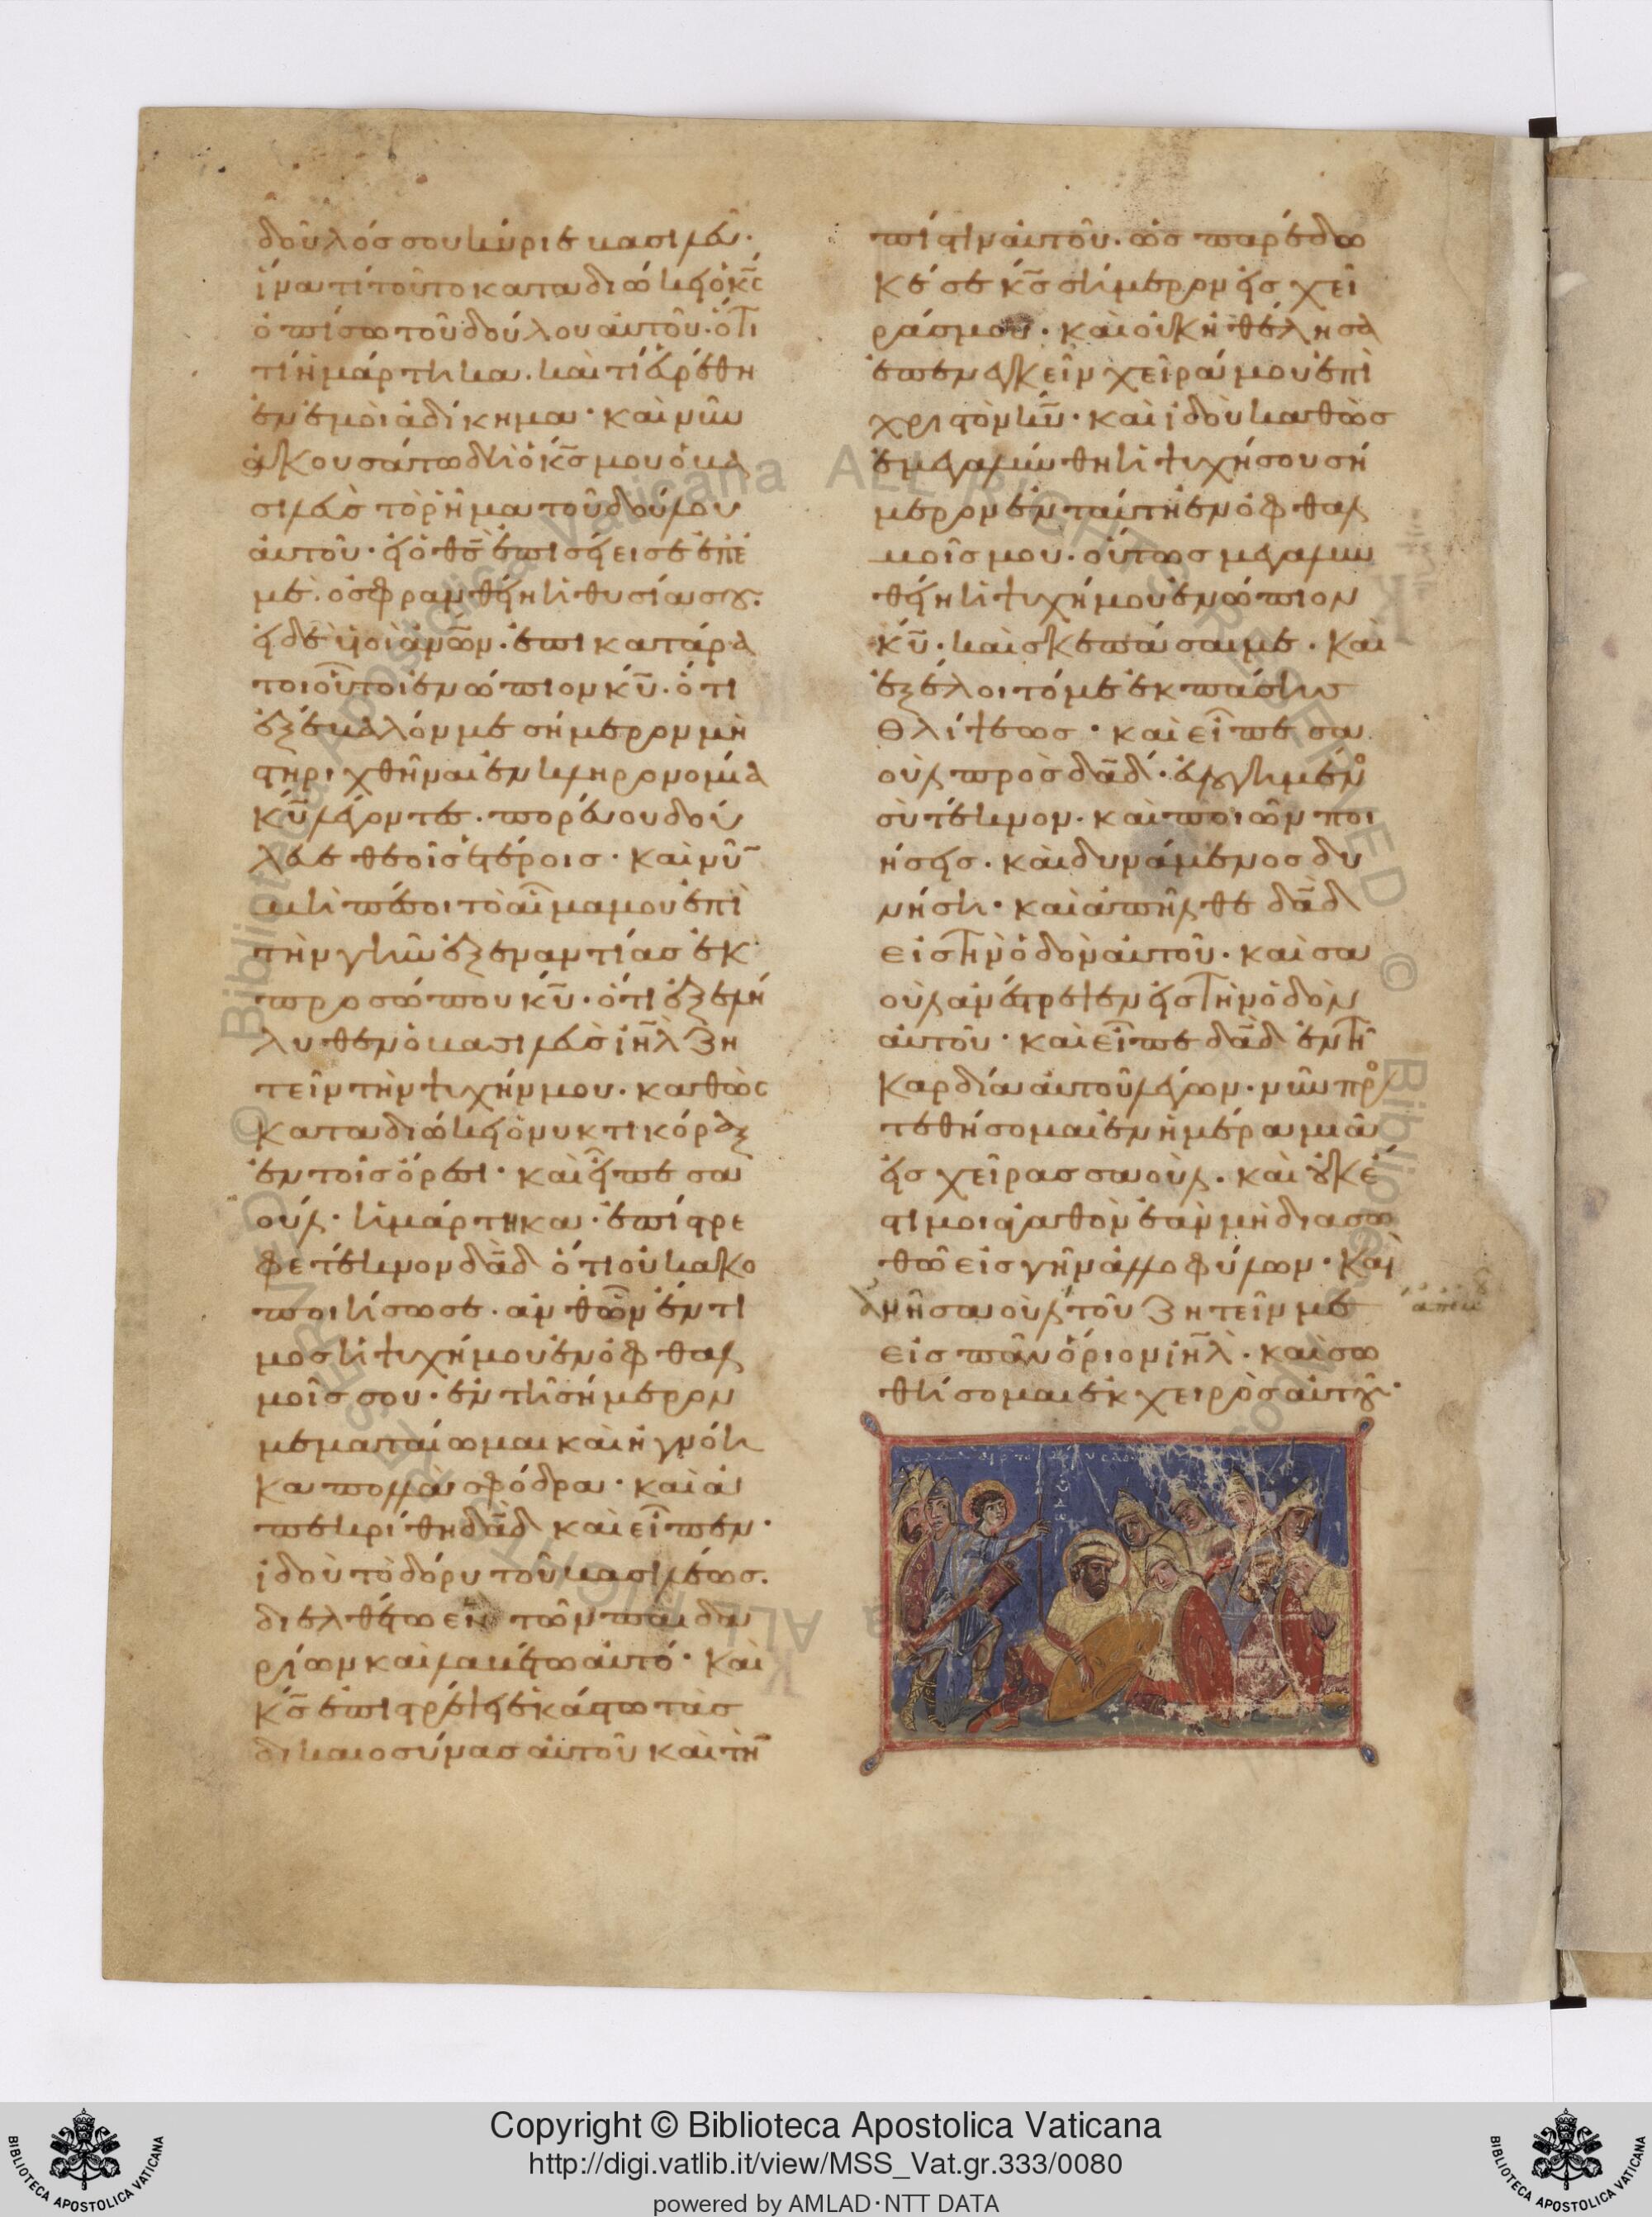 δοῦλός σου κύριε βασιλεῦ·
ἱνατί τοῦτο καταδιώκει ὁ κ̅ς
ὀπίσω τοῦ δούλου αὐτοῦ· ὅτι
τί ἡμάρτηκα. καὶ τί εὑρέθη
ἐν ἐμοὶ ἀδίκημα· καὶ νῦν
ἀκουσάτω δὴ ὁ κ̅ς μου ὁ βα
σιλεὺς τὸ ῥῆμα τοῦ δούλου
αὐτοῦ· εἰ ὁ θ̅ς ἐπισείει σε ἐπ' ἐ
μέ. ὀσφρανθείη ἡ θυσία σου.
εἰ δὲ υἱοὶ ἀν̅ω̅ν· ἐπικατάρα
τοι οὗτοι ἐνώπιον κ̅υ· ὅτι
ἐξέβαλόν με σήμερον μὴ
στηριχθῆναι ἐν κληρονομία
κ̅υ λέγοντες. πορεύου δού
λευε θεοῖς ἑτέροις· καὶ νῦ̅
μὴ πέσοι τὸ αἷμα μου ἐπὶ
τὴν γῆν ἐξεναντίας ἐκ
προσώπου κ̅υ· ὅτι ἐξελή
λυθεν ὁ βασιλεὺς ἰη̅λ ζη
τεῖν τὴν ψυχήν μου. καθὼς
καταδιώκει ὁ νυκτικόραξ
ἐν τοῖς ὄρεσι· καὶ εἶπε σα
ούλ· ἡμάρτηκα· ἐπίστρε
φε τέκνον δα̅δ ὅτι οὐ κακο
ποιήσω σε. ἀνθ' ὧν ἔντι
μος ἡ ψυχή μου ἐν ὀφθαλ
μοῖς σου· ἐν τῆ σήμερον
μεματαίωμαι καὶ ἠγνόη
κα πολλὰ σφόδρα· καὶ ἀ
πεκρίθη δα̅δ καὶ εἶπεν·
ἰδοὺ τὸ δόρυ τοῦ βασιλέως.
διελθέτω εἷς τῶν παιδα
ρίων καὶ λαβέτω αὐτό· καὶ
κ̅ς ἐπιστρέψει ἑκάστω τὰς
δικαιοσύνας αὐτοῦ καὶ τὴ̅
πίστιν αὐτοῦ. ὡς παρέδω
κέ σε κ̅ς σήμερον εἰς χεῖ
ράς μου· καὶ οὐκ ἠθέλησα
ἐπενεγκεῖν χεῖρά μου ἐπὶ
χριστὸν κ̅υ· καὶ ἰδοὺ καθὼς
ἐμεγαλύνθη ἡ ψυχή σου σή
μερον ἐν ταύτη ἐν ὀφθαλ
μοῖς μου. οὕτως μεγαλυν
θείη ἡ ψυχή μου ἐνώπιον
κ̅υ· καὶ σκεπάσαι με. καὶ
ἐξέλοιτό με ἐκ πάσης
θλίψεως· καὶ εἶπε σα
οὺλ πρὸς δα̅δ· εὐλογημένο
σὺ τέκνον. καὶ ποιῶν ποι
ήσεις. καὶ δυνάμενος δυ
νήση· καὶ ἀπῆλθε δα̅δ
εἰς τὴν ὁδὸν αὐτοῦ. καὶ σα
οὺλ ἀνέστρεψεν εἰς τὴν ὁδὸν
αὐτοῦ· καὶ εἶπε δα̅δ ἐν τῆ
καρδία αὐτοῦ λέγων. νῦν προσ
τεθήσομαι ἐν ἡμέρα μιᾶ
εἰς χεῖρας σαούλ. καὶ οὐκ ἔ
στι μοι ἀγαθὸν ἐὰν μὴ διασω
θῶ εἰς γῆν ἀλλοφύλων· καὶ
ἀνῆ σαοὺλ τοῦ ζητεῖν με
εἰς πᾶν ὅριον ἰη̅λ. καὶ σω
θήσομαι ἐκ χειρὸς αὐτοῦ·
Copyright © Biblioteca Apostolica Vaticana
http://digi.vatlib.it/view/MSS_Vat.gr.333/0080
powered by AMLAD·NTT DATA
BIBLIOTECA APOSTOLICA VATICANA
BIBLIOTECA APOSTOLICA VATICANA